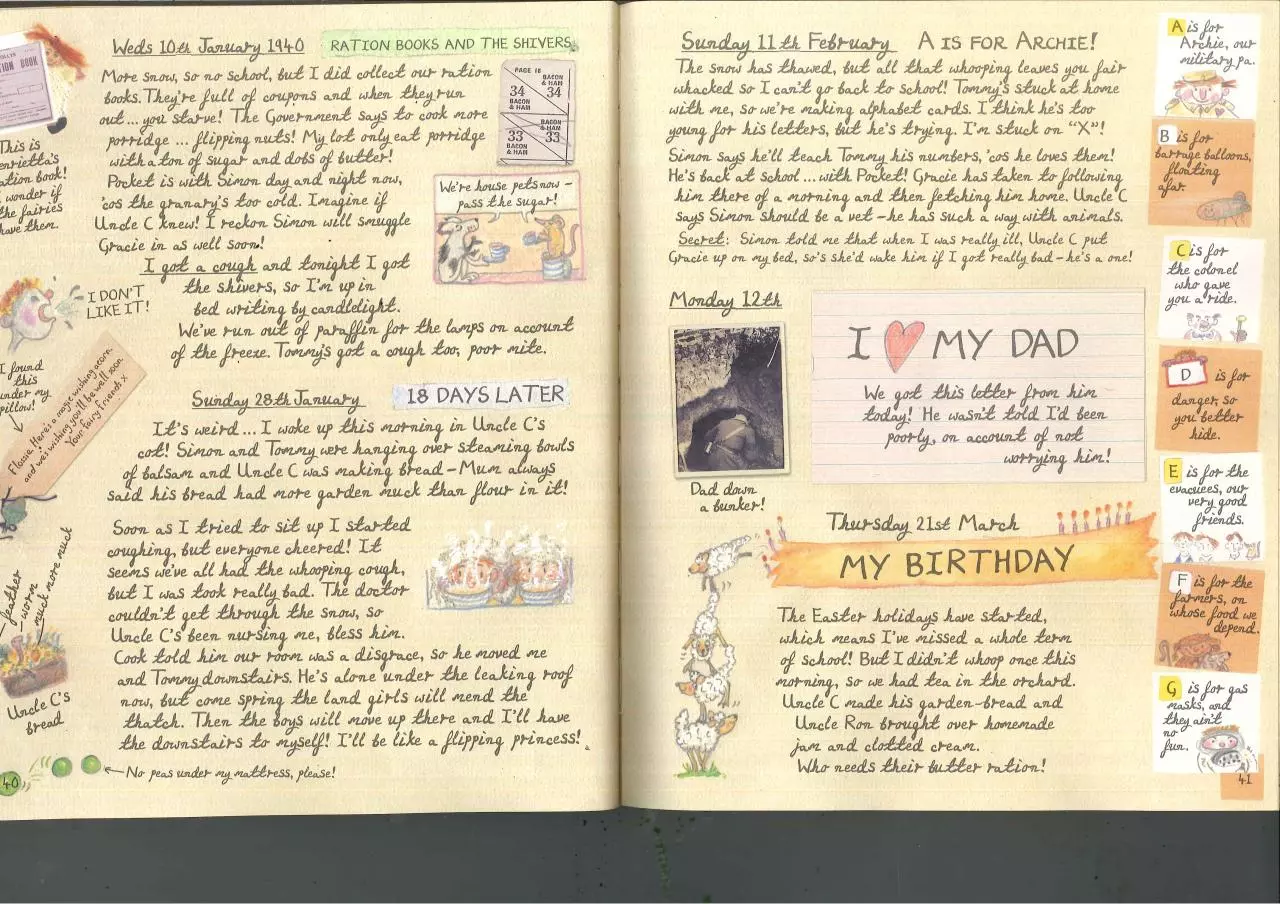 Weds 10th January 1940
RATION BOOKS AND THE SHIVERS
More snow, so no school, but I did collect our ration
books. They're full of coupons and when they run
out... you starve! The Government says to cook more
porridge ... flipping nuts! My lot only eat porridge
with a ton of sugar and dobs of butter!
Pocket is with Simon day and night now,
'cos the granary's too cold. Imagine if
Uncle C knew! I reckon Simon will smuggle
Gracie in as well soon!
I got a cough and tonight I got
the shivers, so I'm up in
bed writing by candlelight.
We've run out of paraffin for the lamps on account
of the freeze. Tommy's got a cough too, poor mite.
PAGE 18
BACON & HAM
34
34
BACON & HAM
BACON & HAM
33
33
BACON & HAM
We're house pets now –
pass the sugar!
ION BOOK
This is
enrietta's
ation book!
wonder if
the fairies
have them.
I DON'T
LIKE IT!
I found
this
under my
pillow!
Flossie, Here's a magic wishing acorn,
and we're wishing you'll be well soon.
Your Fairy Friends x
Sunday 28th January
18 DAYS LATER
It's weird... I woke up this morning in Uncle C's
cot! Simon and Tommy were hanging over steaming bowls
of balsam and Uncle C was making bread – Mum always
said his bread had more garden muck than flour in it!
Soon as I tried to sit up I started
coughing, but everyone cheered! It
seems we've all had the whooping cough,
but I was took really bad. The doctor
couldn't get through the snow, so
Uncle C's been nursing me, bless him.
Cook told him our room was a disgrace, so he moved me
and Tommy downstairs. He's alone under the leaking roof
now, but come spring the land girls will mend the
thatch. Then the boys will move up there and I'll have
the downstairs to myself! I'll be like a flipping princess!
feather
worm
much more muck
Uncle C's
bread
No peas under my mattress, please!
40
Sunday 11th February
A IS FOR ARCHIE!
The snow has thawed, but all that whooping leaves you fair
whacked so I can't go back to school! Tommy's stuck at home
with me, so we're making alphabet cards. I think he's too
young for his letters, but he's trying. I'm stuck on "X"!
Simon says he'll teach Tommy his numbers, 'cos he loves them!
He's back at school... with Pocket! Gracie has taken to following
him there of a morning and then fetching him home. Uncle C
says Simon should be a vet – he has such a way with animals.
Secret: Simon told me that when I was really ill, Uncle C put
Gracie up on my bed, so's she'd wake him if I got really bad – he's a one!
Monday 12th
I MY DAD
We got this letter from him
today! He wasn't told I'd been
poorly, on account of not
worrying him!
Dad down
a bunker!
Thursday 21st March
MY BIRTHDAY
The Easter holidays have started,
which means I've missed a whole term
of school! But I didn't whoop once this
morning, so we had tea in the orchard.
Uncle C made his garden-bread and
Uncle Ron brought over homemade
jam and clotted cream.
Who needs their butter ration!
A is for
Archie, our
military pa.
B is for
barrage balloons,
floating
afar.
C is for
the colonel
who gave
you a ride.
D is for
danger, so
you better
hide.
E is for the
evacuees, our
very good
friends.
F is for the
farmers, on
whose food we
depend.
G is for gas
masks, and
they ain't
no
fun.
41